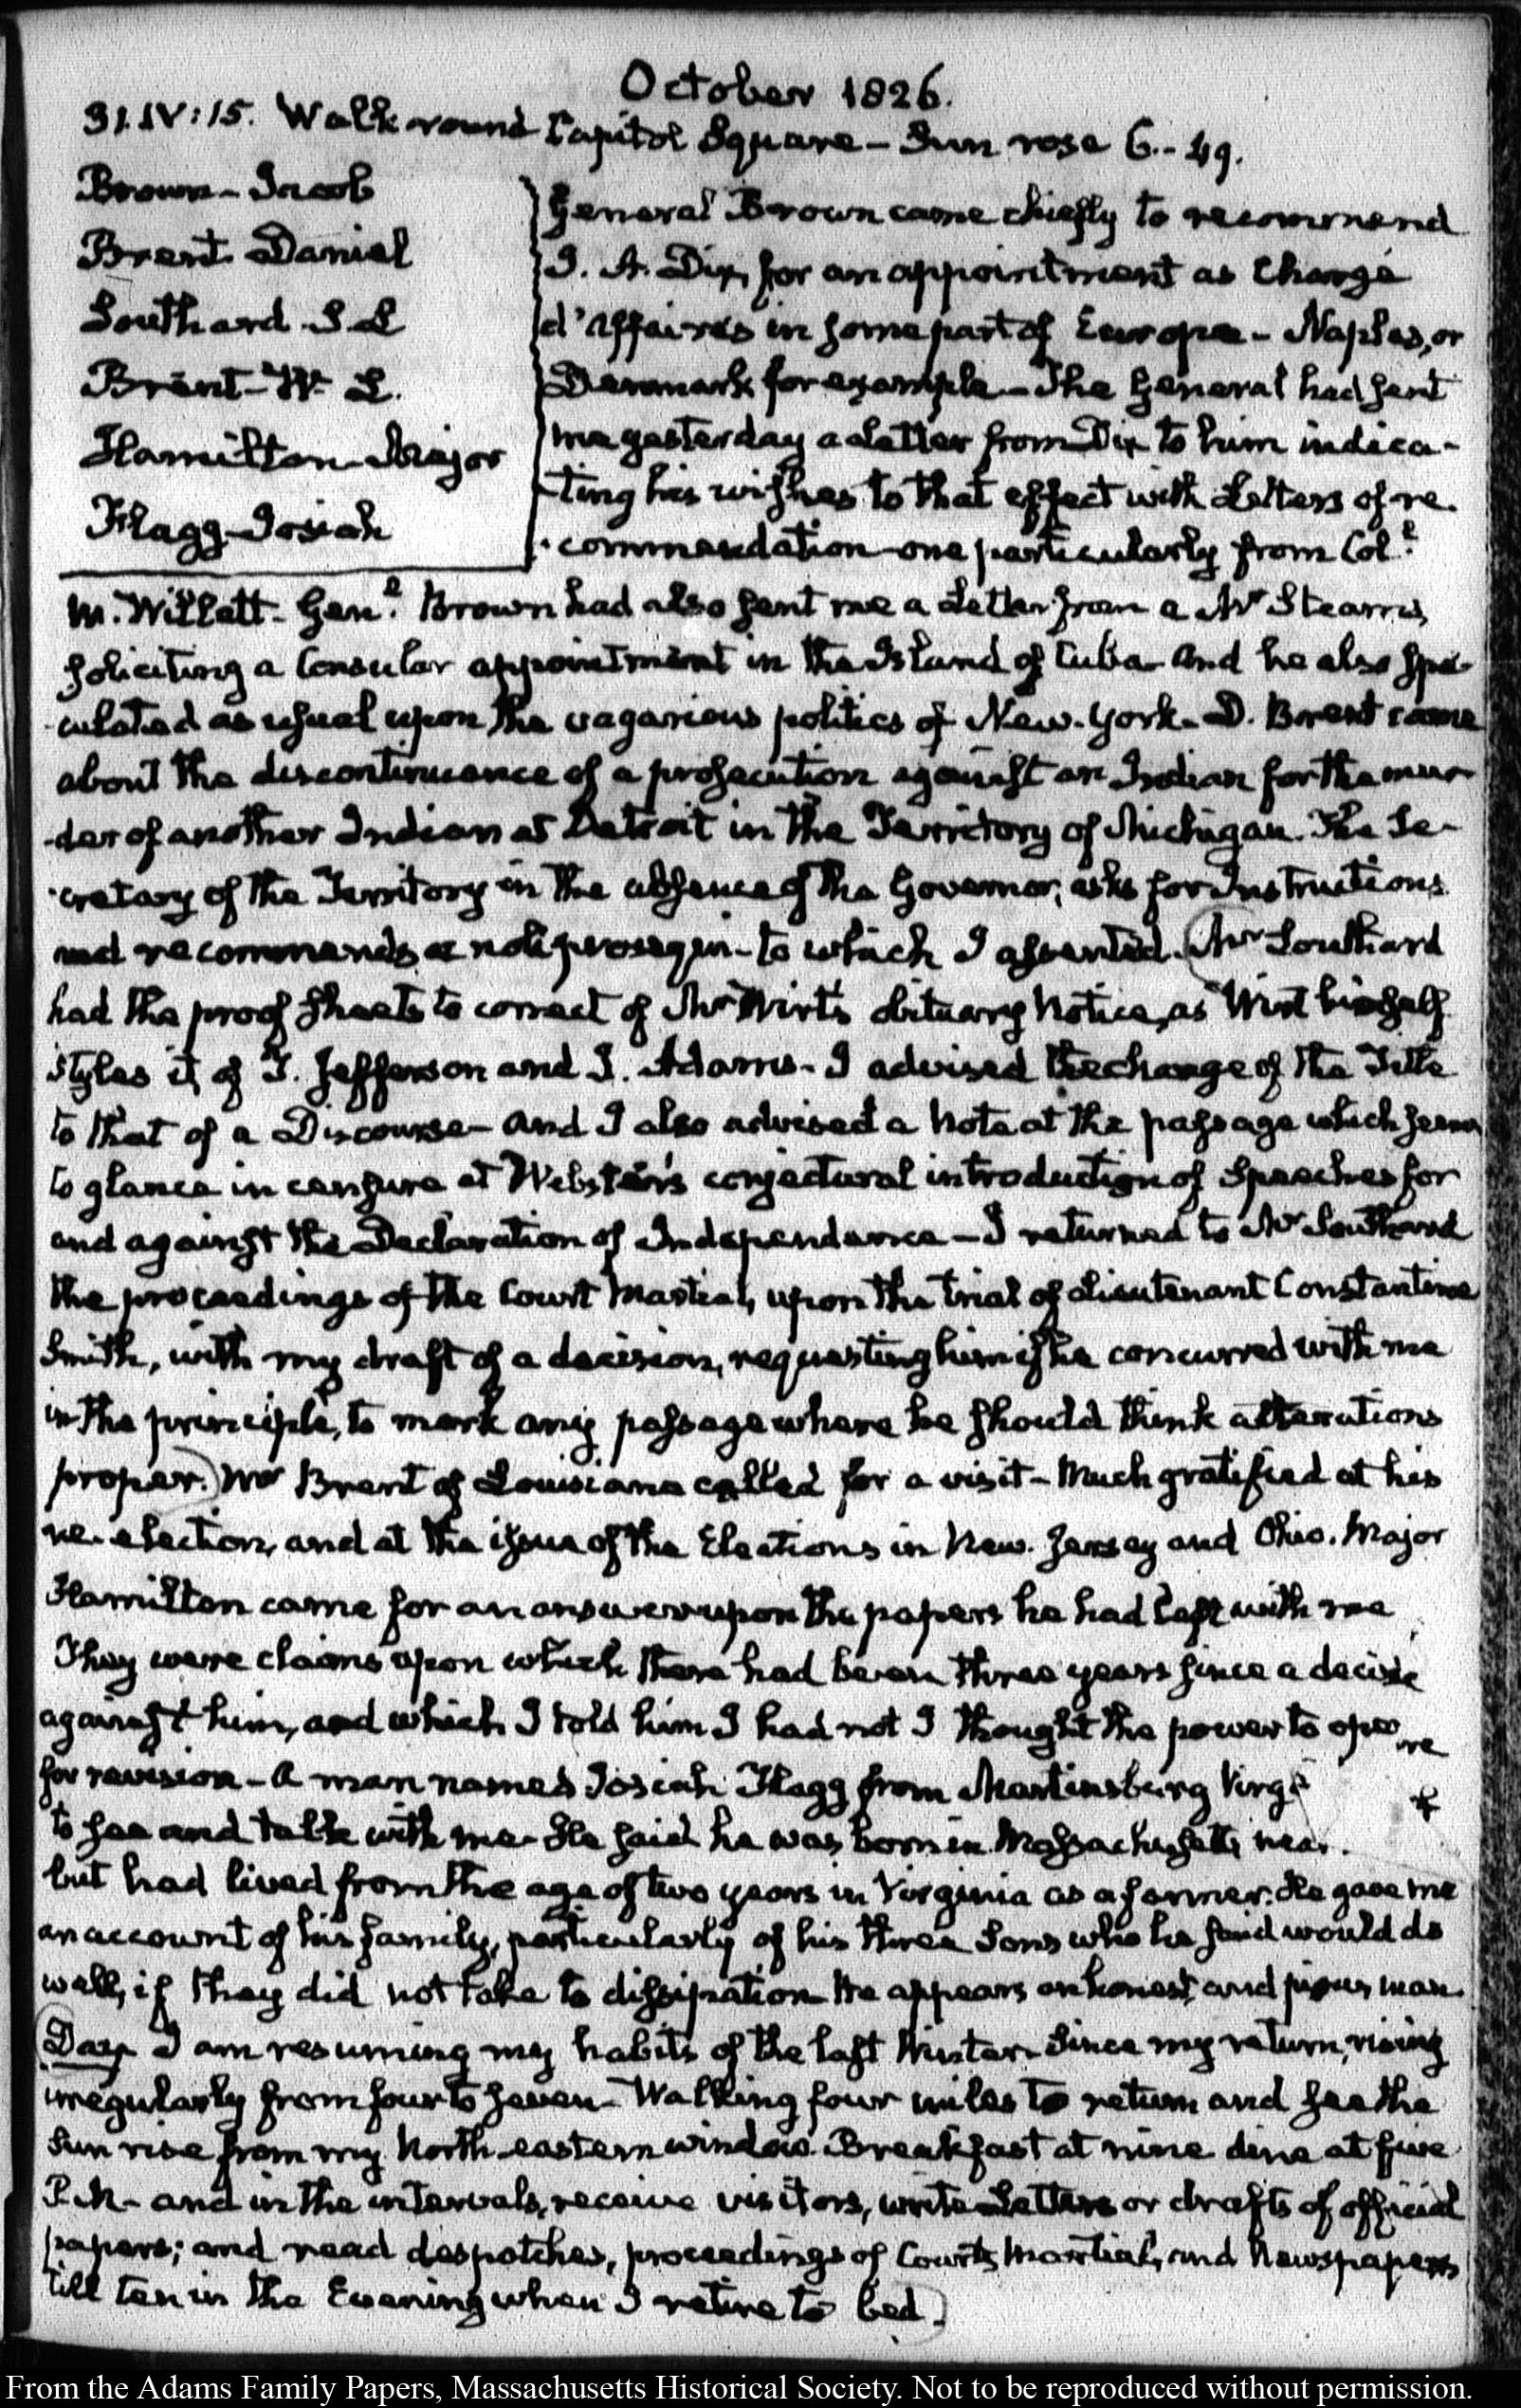 October 1826.
31. IV:15. Walk round Capitol Square – Sun rose 6.- 49.
Brown – Jacob
Brent. Daniel
Southard. S L
Brent – W. L.
Hamilton – Major
Flagg – Josiah
General Brown came chiefly to recommend
J. A. Dix, for an appointment as Chargé
d'affaires in some part of Europe – Naples, or
Denmark for example – The General had sent
me yesterday a Letter from Dix to him indica-
-ting his wishes to that effect with Letters of re-
-commendation one particularly from Coll.
M. Willett – Genl. Brown had also sent me a Letter from a Mr Stearns,
soliciting a Consular appointment in the Island of Cuba – and he also spe-
-culated as usual upon the vagarious politics of New-York – D. Brent came
about the discontinuance of a prosecution against an Indian for the mur-
-der of another Indian at Detroit in the Territory of Michigan. The Se-
-cretary of the Territory in the absence of the Governor, asks for Instructions
and recommends a noli prosequi – to which I assented. (Mr Southard
had the proof sheets to correct of Mr Wirt's obituary Notice, as Wirt himself
styles it, of T. Jefferson and J. Adams – I advised the change of the Title
to that of a Discourse – and I also advised a Note at the passage which seems
to glance in censure at Webster's conjectural introduction of Speeches for
and against the Declaration of Independence – I returned to Mr Southard
the proceedings of the Court Martial, upon the trial of Lieutenant Constantine
Smith, with my draft of a decision, requesting him if he concurred with me
in the principle, to mark any passage where he should think alterations
proper.) Mr Brent of Louisiana called for a visit – Much gratified at his
re-election, and at the issue of the Elections in New-Jersey and Ohio. Major
Hamilton came for an answer upon the papers he had left with me
They were claims upon which there had been three years since a
against him, and which I told him I had not I thought the power to
for revision – A man named Josiah Flagg from Martinsburg Virga
to see and talk with me – He said he was born in Massachusetts near
but had lived from the age of two years in Virginia as a farmer. He gave me
an account of his family, particularly of his three Sons who he said would do
well, if they did not take to dissipation – He appears an honest, and pious man.
(Day. I am resuming my habits of the last Winter. Since my return, rising
irregularly from four to seven – Walking four miles to return and see the
Sun rise from my North-eastern window. Breakfast at nine dine at five
P.M – and in the intervals, receive visitors, write Letters or drafts of official
papers; and read despatches, proceedings of Courts Martial, and Newspapers
till ten in the Evening when I retire to bed.)
From the Adams Family Papers, Massachusetts Historical Society. Not to be reproduced without permission.